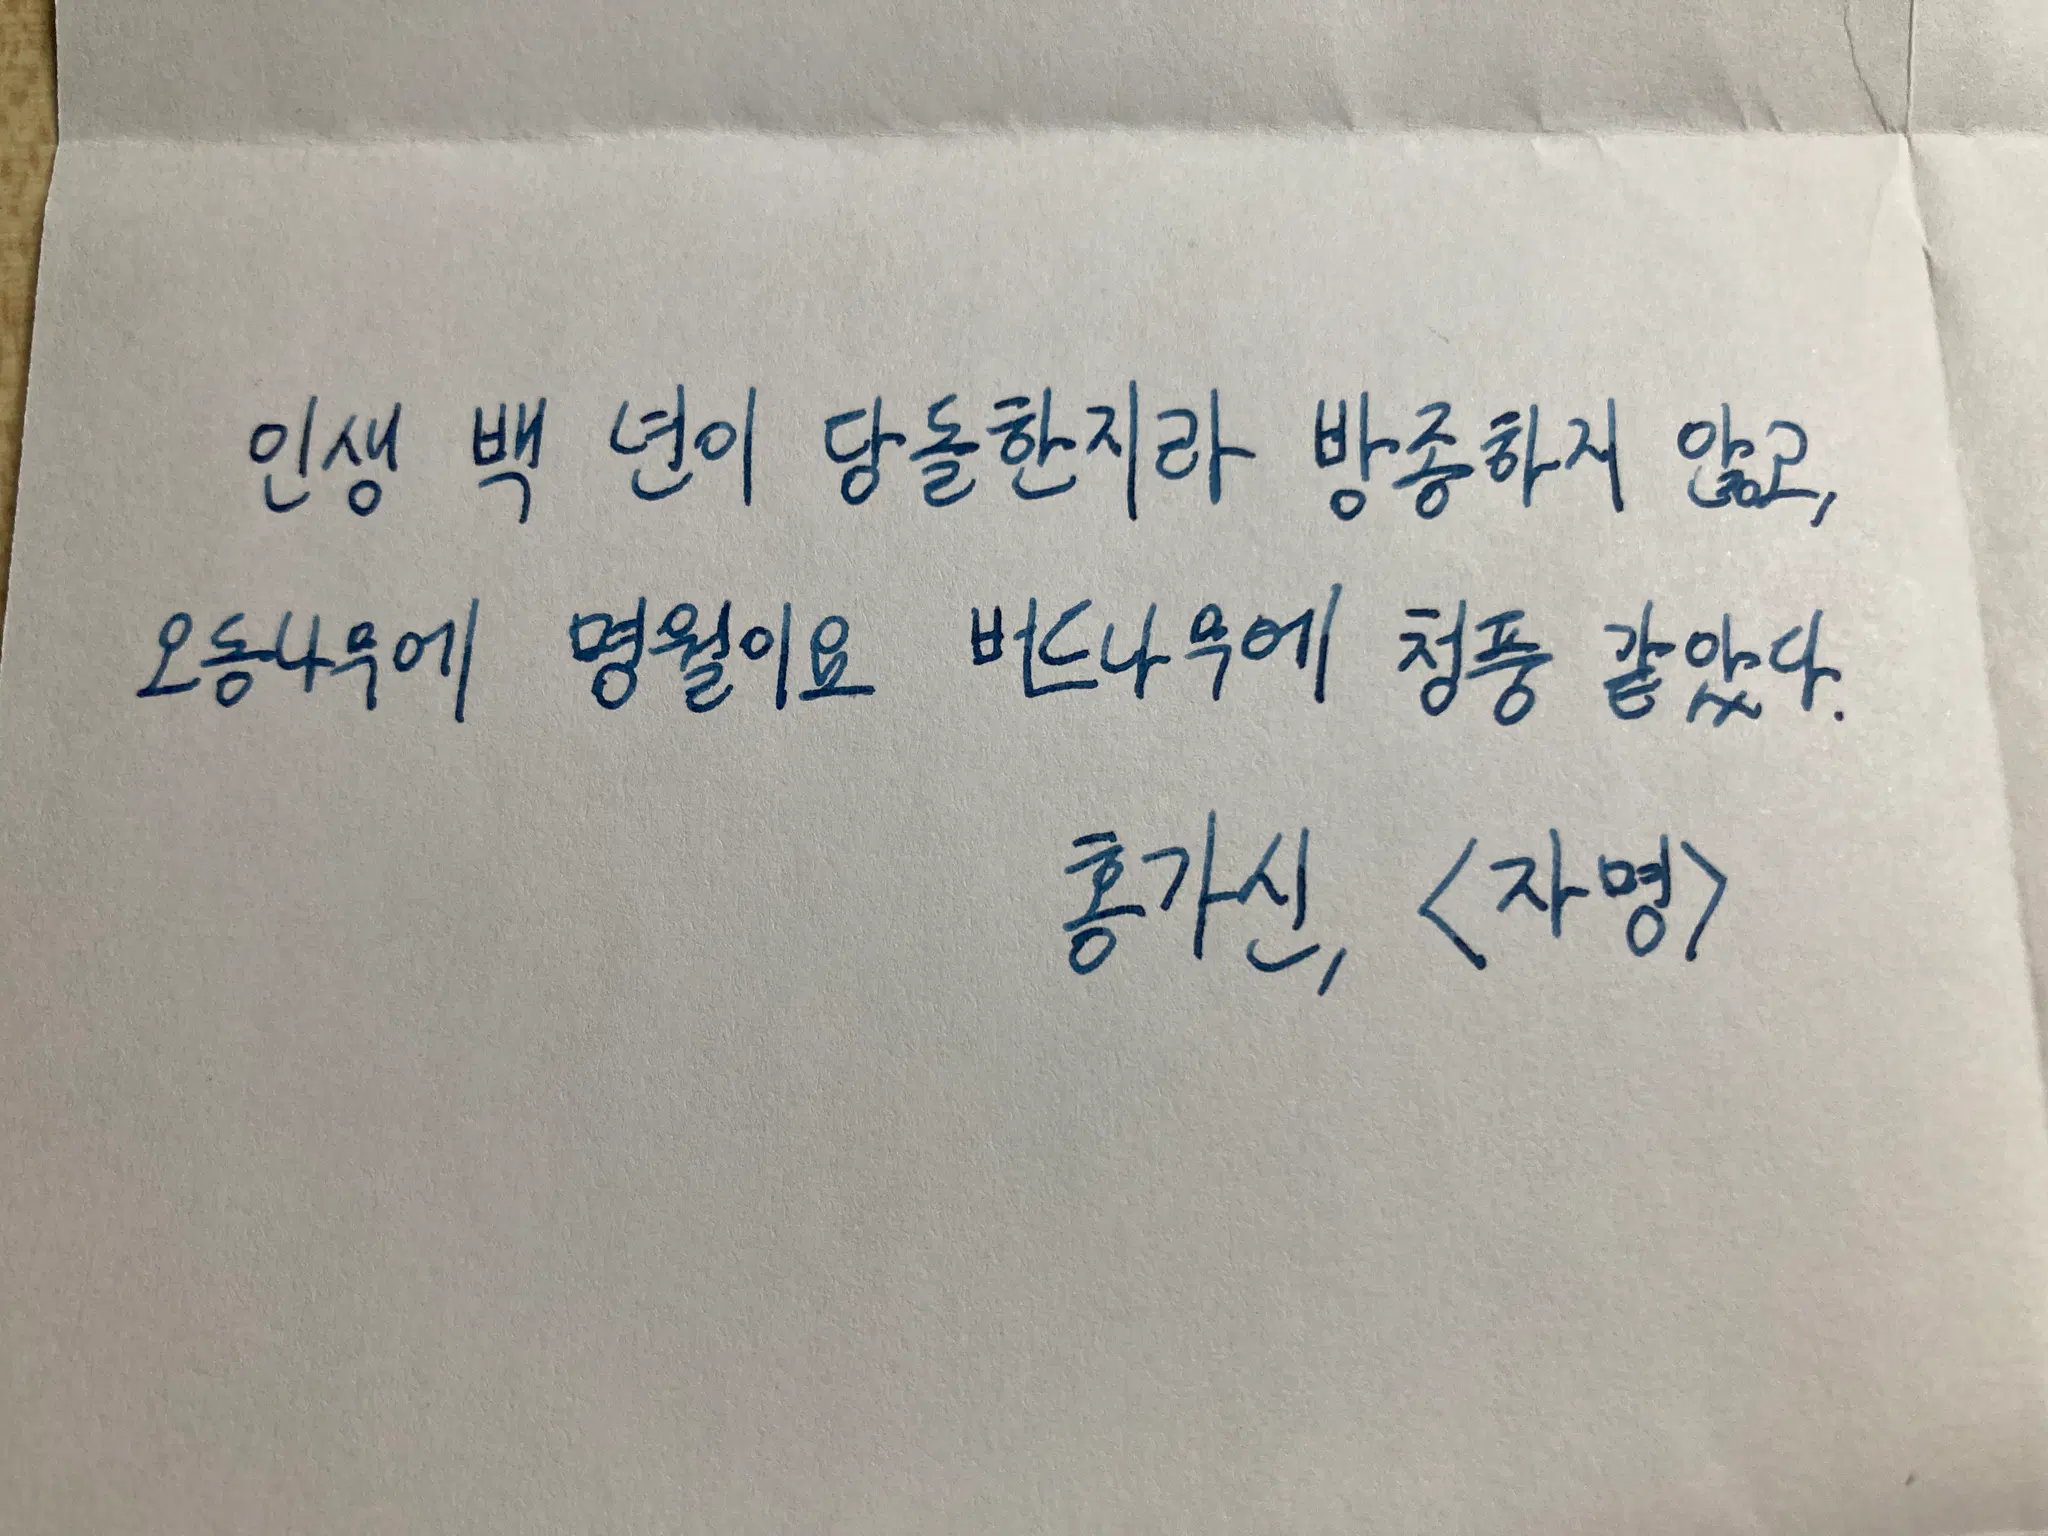 인생 백 년이 당돌한지라 방종하지 않고,
오동나무에 명월이요 버드나무에 청풍 같았다.
홍가신, <자명>